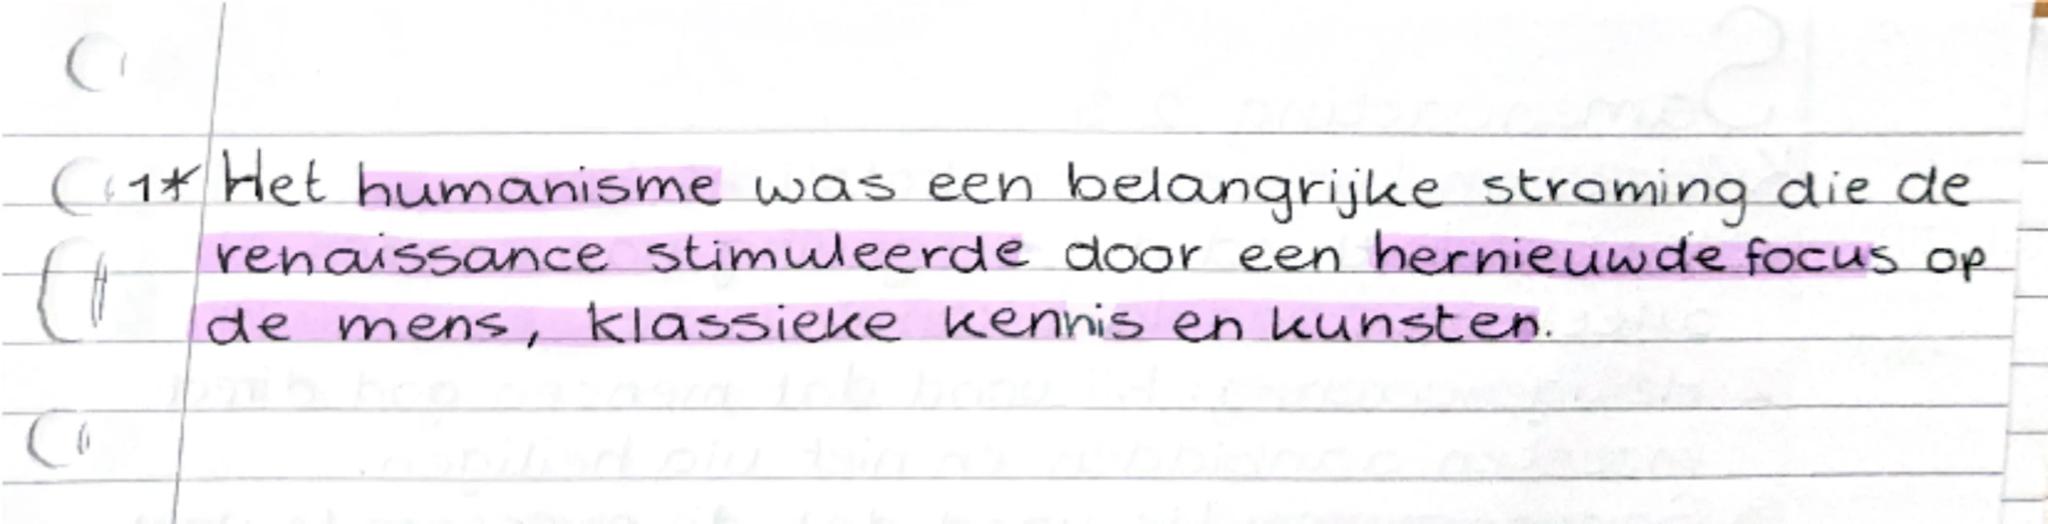 1* Het humanisme was een belangrijke stroming die de
renaissance stimuleerde door een hernieuwde focus op
de mens, klassieke kennis en kunsten.